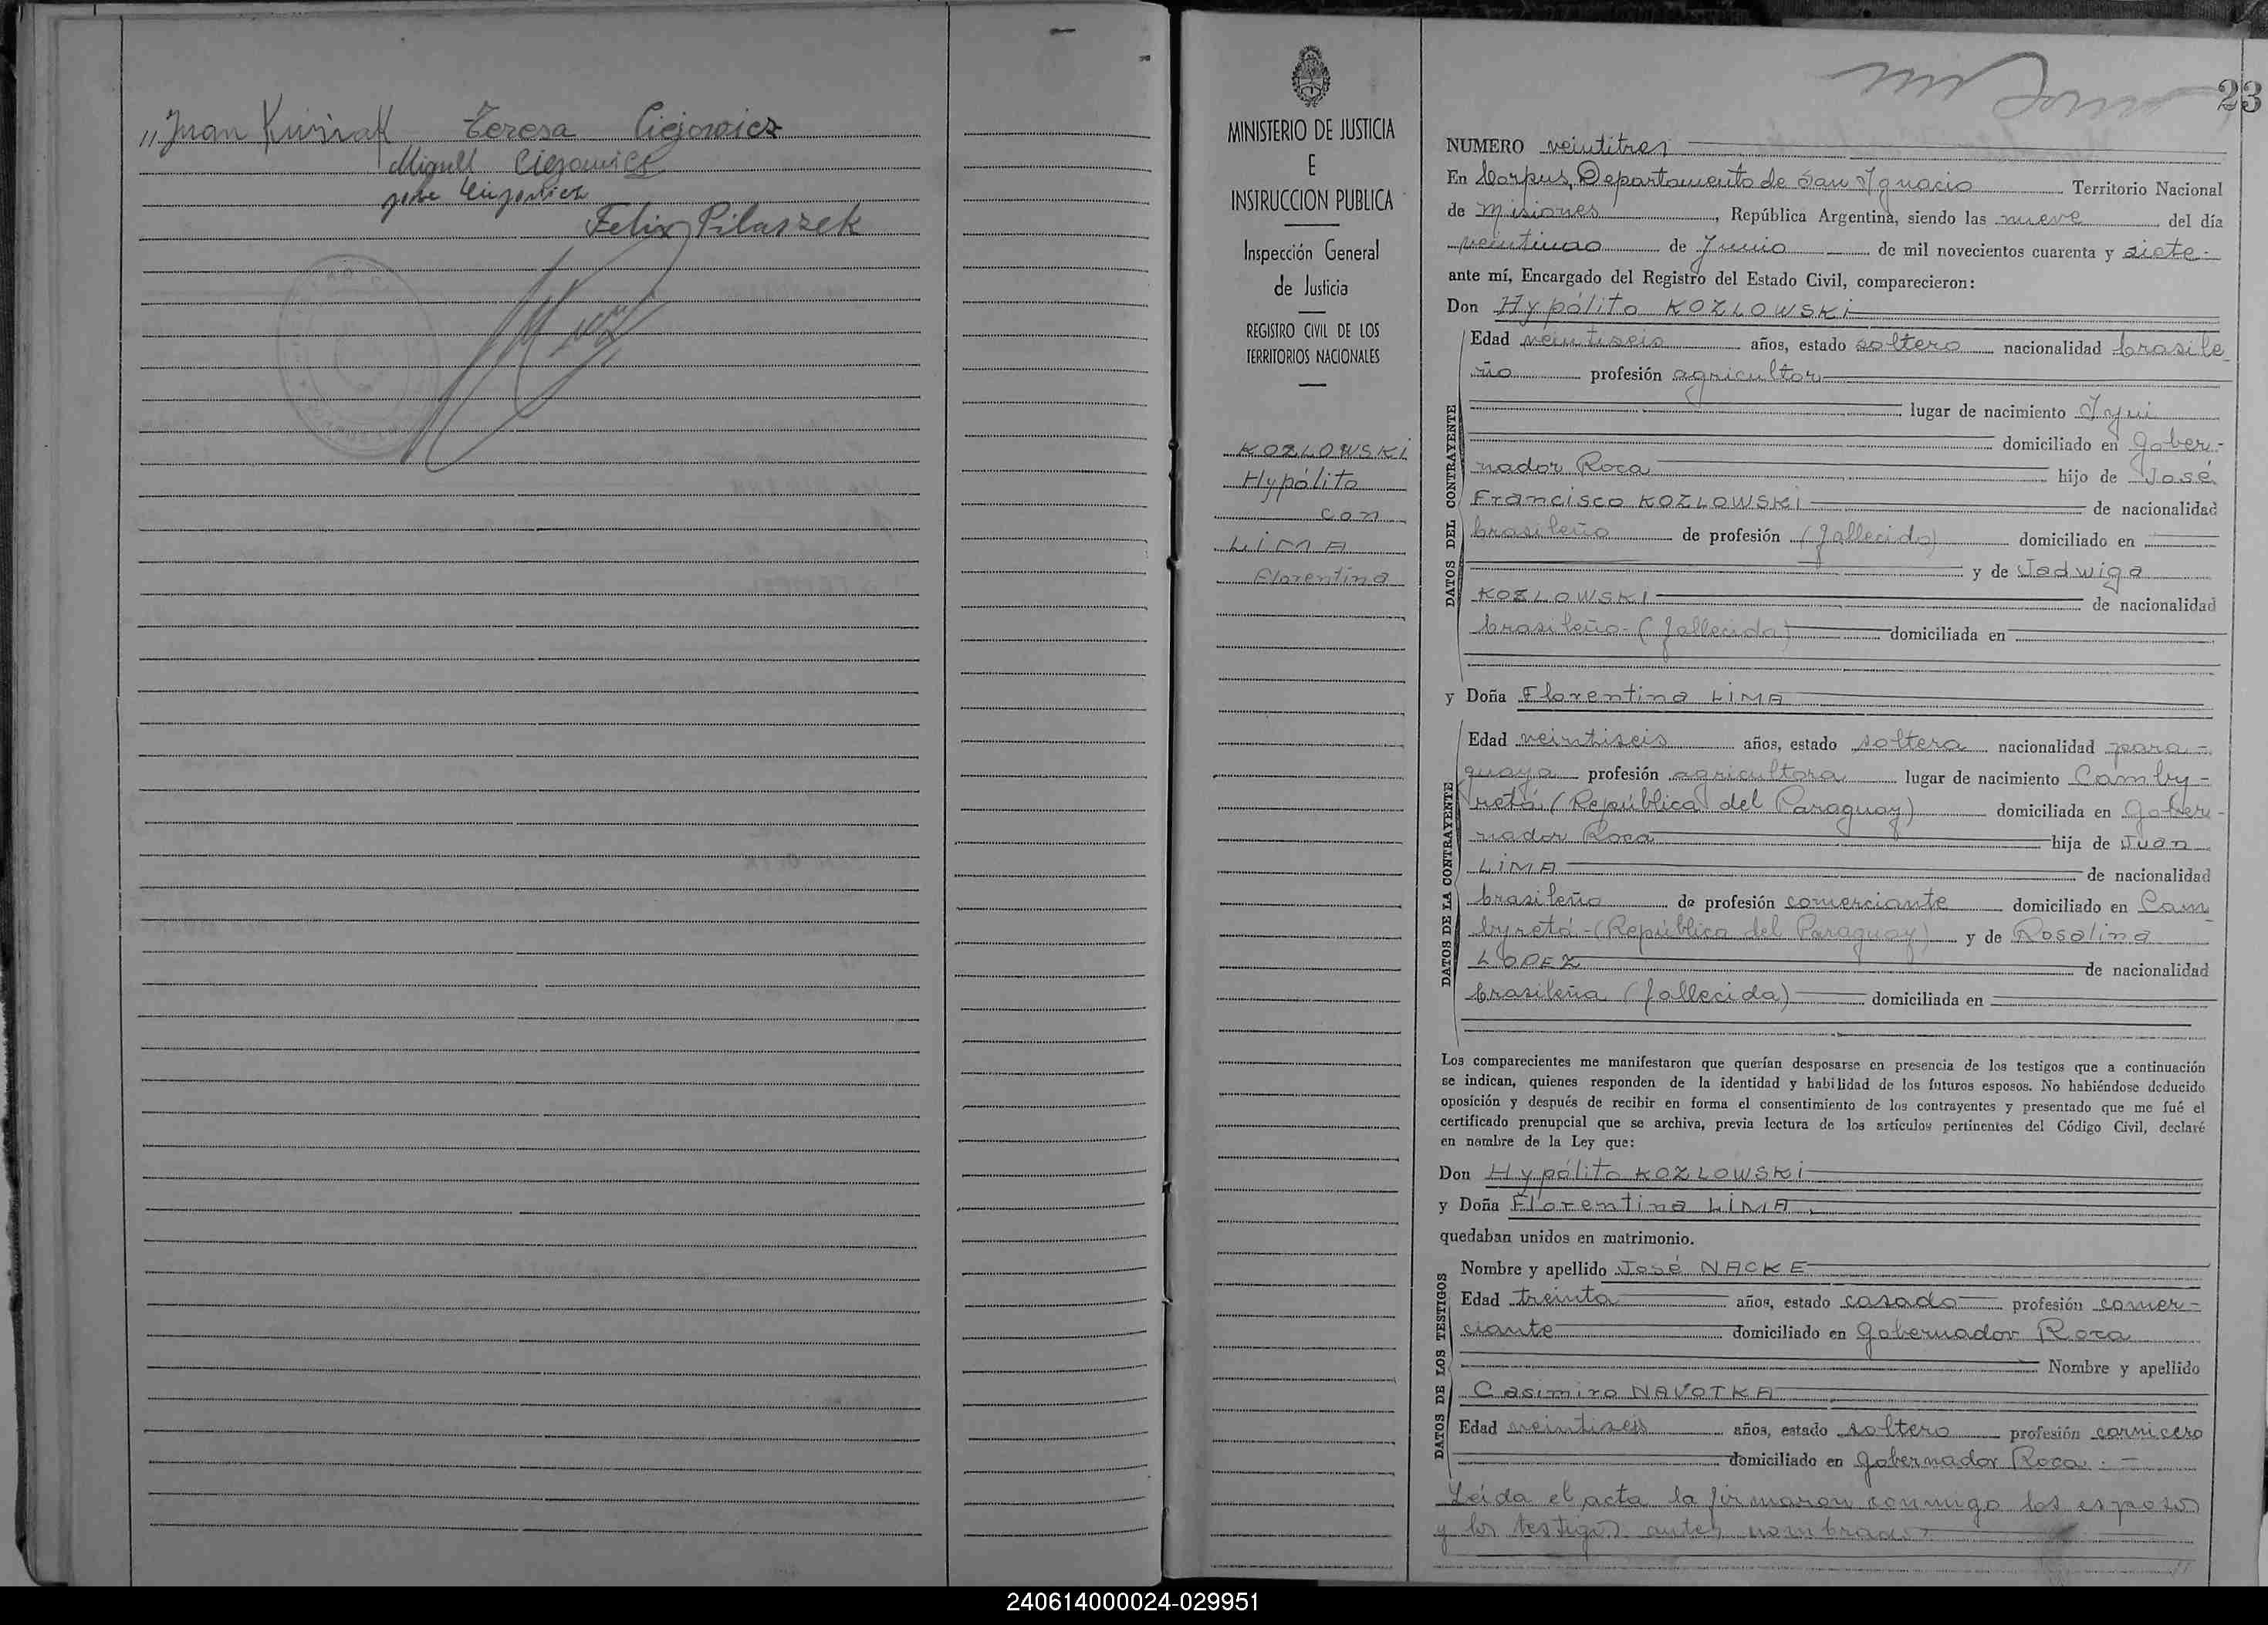 "Juan Kusiak Teresa Ciejowicz
Miguel Ciezowicz
Felix Pilaszek
MINISTERIO DE JUSTICIA
E
INSTRUCCION PUBLICA
Inspección General
de Justicia
REGISTRO CIVIL DE LOS
TERRITORIOS NACIONALES
KOZLOWSKI
Hypólito
con
LIMA
Florentina
23
NUMERO veintitres
En Corpus, Departamento de San Ignacio Territorio Nacional
de Misiones, República Argentina, siendo las nueve del día
veintiuno de Junio de mil novecientos cuarenta y siete
ante mí, Encargado del Registro del Estado Civil, comparecieron:
Don Hypólito KOZLOWSKI
DATOS DEL CONTRAYENTE
Edad veintiseis años, estado soltero nacionalidad brasile
ño profesión agricultor
lugar de nacimiento Iyui
domiciliado en Gober-
nador Roca hijo de José
Francisco KOZLOWSKI de nacionalidad
brasileño de profesión (fallecido) domiciliado en
y de Jadwiga
KOZLOWSKI de nacionalidad
brasileño-(fallecida) domiciliada en
y Doña Florentina LIMA
DATOS DE LA CONTRAYENTE
Edad veintiseis años, estado soltera nacionalidad para-
guaya profesión agricultora lugar de nacimiento Camby-
retá (República del Paraguay) domiciliada en Gober-
nador Roca hija de Juan
LIMA de nacionalidad
brasileño de profesión comerciante domiciliado en Cam
byretá-(República del Paraguay) y de Rosalina
LOPEZ de nacionalidad
brasileña (fallecida) domiciliada en
Los comparecientes me manifestaron que querían desposarse en presencia de los testigos que a continuación
se indican, quienes responden de la identidad y habilidad de los futuros esposos. No habiéndose deducido
oposición y después de recibir en forma el consentimiento de los contrayentes y presentado que me fué el
certificado prenupcial que se archiva, previa lectura de los artículos pertinentes del Código Civil, declaré
en nombre de la Ley que:
Don Hypólito KOZLOWSKI
y Doña Florentina LIMA
quedaban unidos en matrimonio.
DATOS DE LOS TESTIGOS
Nombre y apellido José NACKE
Edad treinta años, estado casado profesión comer-
ciante domiciliado en Gobernador Roca
Nombre y apellido
Casimiro NAVOTKA
Edad veintiseis años, estado soltero profesión carnicero
domiciliado en Gobernador Roca.-
Leída el acta la firmaron conmigo los esposos
y los testigos antes nombrados
240614000024-029951